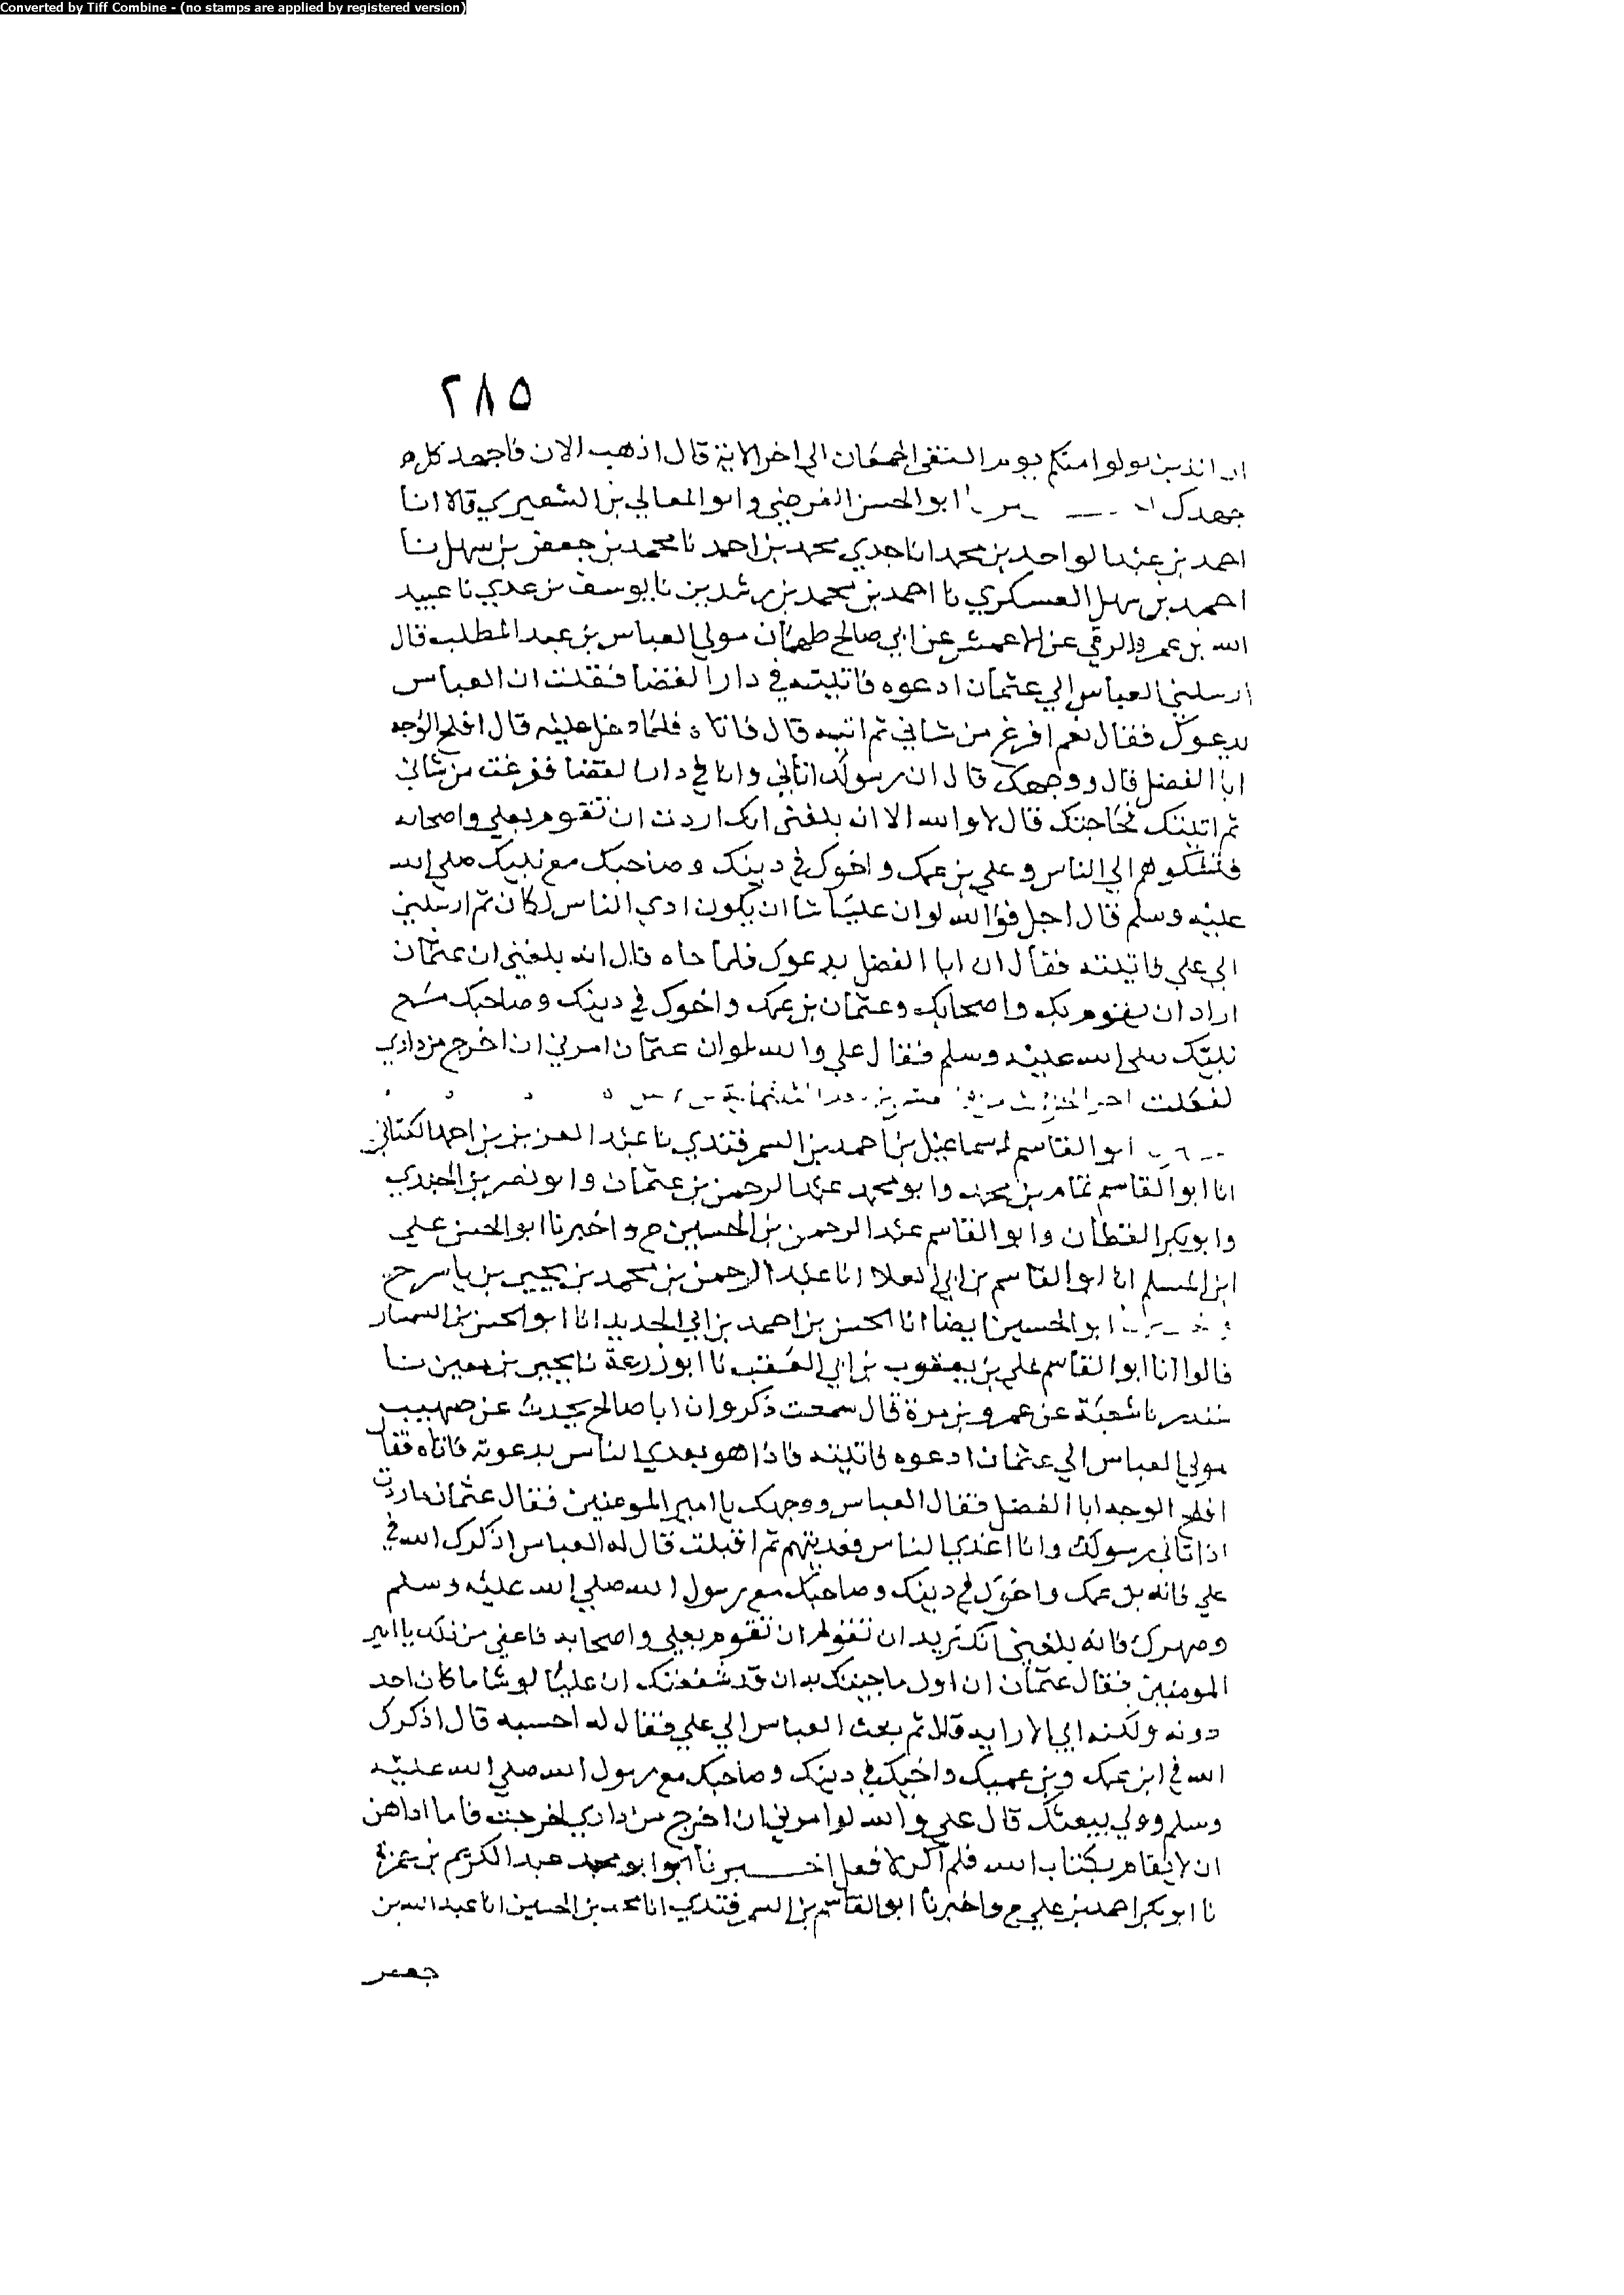 Converted by Tiff Combine - (no stamps are applied by registered version)
٢٨٥
ان الذين تولوا منكم يوم التقى الجمعان الى اخر الاية قال اذهب الان فاجهد على
جهدك ابو الحسن الفرضي وابو المعالي بن الشعيري قالا انا
احمد بن عبد الواحد بن محمد انا جدي محمد بن احمد نا محمد بن جعفر بن سهل نا
احمد بن سهل العسكري نا احمد بن محمد بن رشدين نا يوسف بن عدي نا عبيد
الله بن عمرو الرقي عن الاعمش عن ابي صالح طهمان مولي العباس بن عبد المطلب قال
ارسلني العباس الي عثمان ادعوه فاتيته في دار القضا فقلت ان العباس
يدعوك فقال نعم افرغ من شاني ثم اتيه قال فاتاه فلما دخل عليه قال افلح الوجه
ابا الفضل قال ووجهك قال ان رسولك اتاني وانا في دار القضا ففرغت من شاني
ثم اتيتك فحاجتك قال لا والله الا انه بلغني انك اردت ان تقوم بعلي واصحابه
فتشكوهم الي الناس وعلي بن عمك واخوك في دينك وصاحبك مع نبيك صلي الله
عليه وسلم قال اجل فوالله لو ان عليا شا ان يكون ادي الناس لكان ثم ارسلني
الي علي فاتيته فقال ان ابا الفضل يدعوك فلما جاه قال انه بلغني ان عثمان
اراد ان يقوم بك واصحابك وعثمان بن عمك واخوك في دينك وصاحبك مع
نبيك صلى الله عليه وسلم فقال علي والله لو ان عثمان امرني ان اخرج من داري
لفعلت اخر الجزء
ابو القاسم اسماعيل بن احمد بن السمرقندي نا عبد العزيز بن احمد الكتاني
انا ابو القاسم تمام بن محمد وابو محمد عبد الرحمن بن عثمان وابو نصر بن الجندي
وابو بكر القطان وابو القاسم عبد الرحمن بن الحسين ح واخبرنا ابو الحسن علي
ابن المسلم انا ابو القاسم بن ابي العلا انا عبد الرحمن بن محمد بن يحيى بن ياسر ح
ابو الحسين ايضا انا الحسن بن احمد بن ابي الحديد انا ابو الحسن بن السمسار
قالوا انا ابو القاسم علي بن يعقوب بن ابي العقب نا ابو زرعة نا يحيى بن معين نا
غندر نا شعبة عن عمرو بن مرة قال سمعت ذكروان ابا صالح يحدث عن صهيب
مولي العباس الي عثمان ادعوه فاتيته فاذا هو يغدي الناس يدعوته فاتاه فقال
افلح الوجه ابا الفضل فقال العباس ووجهك يا امير المومنين فقال عثمان ما زدت
اذ اتاني رسولك وانا اغدي الناس فغديتهم ثم اقبلت قال له العباس اذكرك الله في
علي فانه بن عمك واخوك في دينك وصاحبك مع رسول الله صلي الله عليه وسلم
وصهرك فانه بلغني انك تريد ان تقوم بعلي واصحابه فاعفني من ذلك يا امير
المومنين فقال عثمان ان اول ما جيبتك به ان قد شفعتك ان عليا لو شا ما كان احد
دونه ولكنه ابي الا رايه قال ثم بعث العباس الي علي فقال له احسبه قال اذكرك
الله في ابن عمك وبن عميك واخيك في دينك وصاحبك مع رسول الله صلي الله عليه
وسلم وولي بيعتك قال علي والله لو امرني ان اخرج من داري لخرجت فاما اداهن
ان لا يقام بكتاب الله فلم اكن لافعل اخبرنا ابو محمد عبد الكريم بن حمزة
نا ابو بكر احمد بن علي ح واخبرنا ابو القاسم بن السمرقندي انا محمد بن الحسين انا عبد الله بن
جعفر